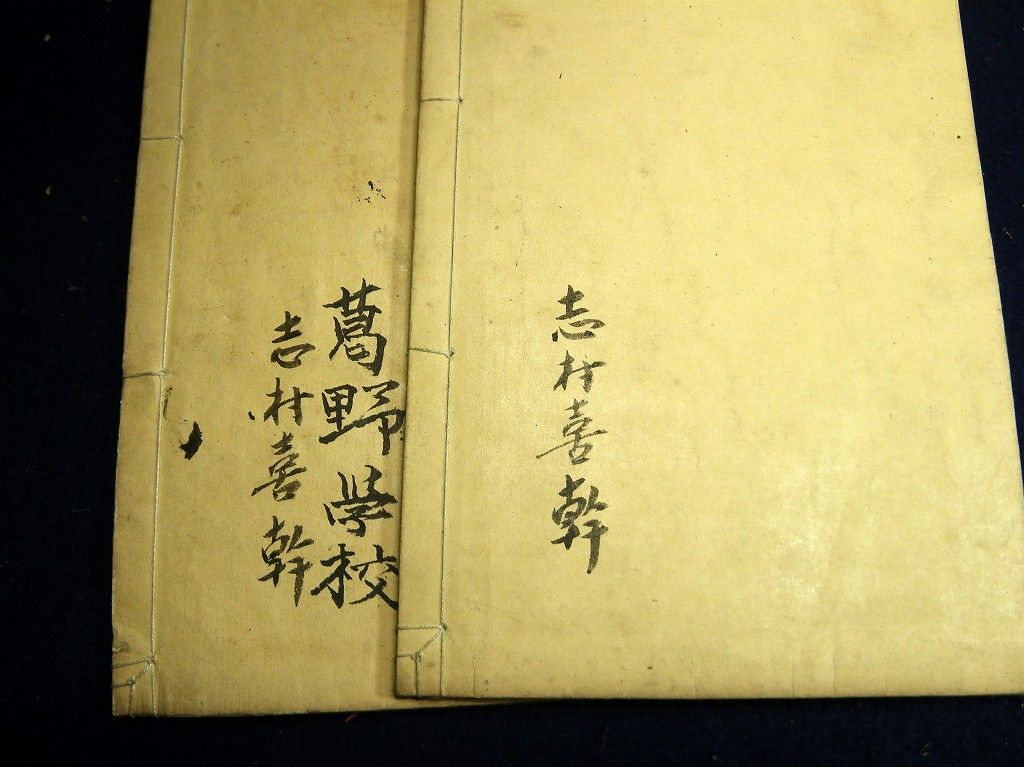 志村喜幹
葛野学校
志村喜幹